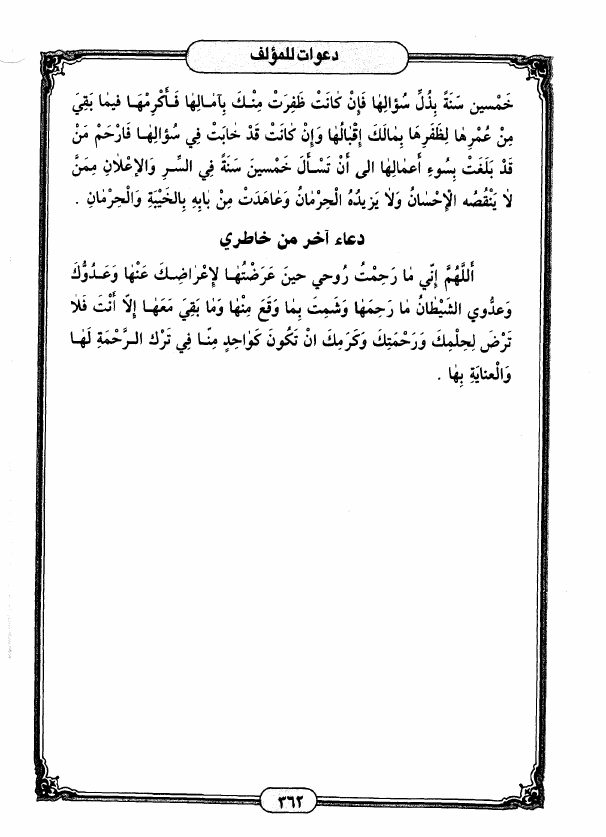 دعوات للمؤلف
خَمْسين سَنَةً بِذُلِّ سُؤالِهٰا فَإِنْ كٰانَتْ ظَفِرَتْ مِنْكَ بِآمٰالِهٰا فَأَكْرِمْهَا فيمٰا بَقِيَ
مِنْ عُمْرِهٰا لِظَفَرِهٰا بِمٰالَكَ إِقْبٰالُهٰا وَإِنْ كٰانَتْ قَدْ خٰابَتْ فِي سُؤالِهٰا فَارْحَمْ مَنْ
قَدْ بَلَغَتْ بِسُوءِ أَعمٰالِهٰا الى أَنْ تَسْأَلَ خَمْسينَ سَنَةً فِي السِّرِ وَالإِعْلاٰنِ مِمَنَّ
لاٰ يَنْقُصُه الْإِحْسٰانُ وَلاٰ يَزيدُهُ الْحِرمٰانُ وَعٰاهَدَتْ مِنْ بٰابِهِ بِالْخَيْبَةِ وَالْحِرْمٰانِ .
دعاء آخر من خاطري
أَللَّهُمَّ إِنّي مٰا رَحِمْتُ رُوحي حينَ عَرَضْتُهٰا لِإعْراضِكَ عَنْهٰا وَعَدُوُّكَ
وَعدُّوي الشَيْطٰانُ مٰا رَحِمَهٰا وَشَمِتَ بِمٰا وَقَعَ مِنْهٰا وَمٰا بَقِيَ مَعَهٰا إِلاّ أَنْتَ فَلاٰ
تَرْضَ لِحِلْمِكَ وَرَحْمَتِكَ وَكَرَمِكَ انْ تَكُونَ كَوٰاحِدٍ مِنّا فِي تَرْك الرَّحْمَةِ لَهٰا
وَالْعنايَةِ بِهٰا .
٣٦٢